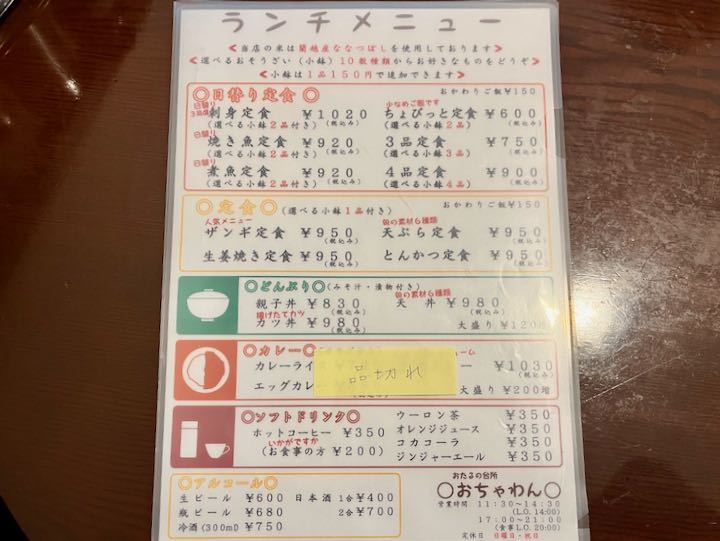 ランチメニュー
≪当店の米は蘭越産ななつぼしを使用しております≫
≪選べるおそうざい(小鉢)10数種類からお好きなものをどうぞ≫
≪小鉢は1品150円で追加できます≫
○日替り定食○
おかわりご飯¥150
日替り
3点盛
刺身定食 ¥1020
(選べる小鉢2品付き) (税込み)
日替り
焼き魚定食 ¥920
(選べる小鉢2品付き) (税込み)
日替り
煮魚定食 ¥920
(選べる小鉢2品付き) (税込み)
小なめご飯です
ちょびっと定食 ¥600
(選べる小鉢2品) (税込み)
3品定食 ¥750
(選べる小鉢3品) (税込み)
4品定食 ¥900
(選べる小鉢4品) (税込み)
○定食○(選べる小鉢1品付き) おかわりご飯¥150
人気メニュー
ザンギ定食 ¥950
(税込み)
旬の素材6種類
天ぷら定食 ¥950
(税込み)
生姜焼き定食 ¥950
(税込み)
とんかつ定食 ¥950
(税込み)
○どんぶり○(みそ汁・漬物付き)
親子丼 ¥830
(税込み)
旬の素材6種類
天丼 ¥980
(税込み)
揚げたてカツ
カツ丼 ¥980
(税込み)
大盛り ¥120増
○カレー○
カレーライ
ー ¥1030
(税込み)
エッグカレ
大盛り ¥200増
品切れ
○ソフトドリンク○
ホットコーヒー ¥350
いかがですか
(お食事の方 ¥200)
ウーロン茶 ¥350
オレンジジュース ¥350
コカコーラ ¥350
ジンジャーエール ¥350
○アルコール○
生ビール ¥600 日本酒 1合¥400
瓶ビール ¥680 2合¥700
冷酒(300ml) ¥750
おたるの台所
○おちゃわん○
営業時間 11:30~14:30
(L.O. 14:00)
17:00~21:00
(食事L.O. 20:00)
定休日 日曜日・祝日